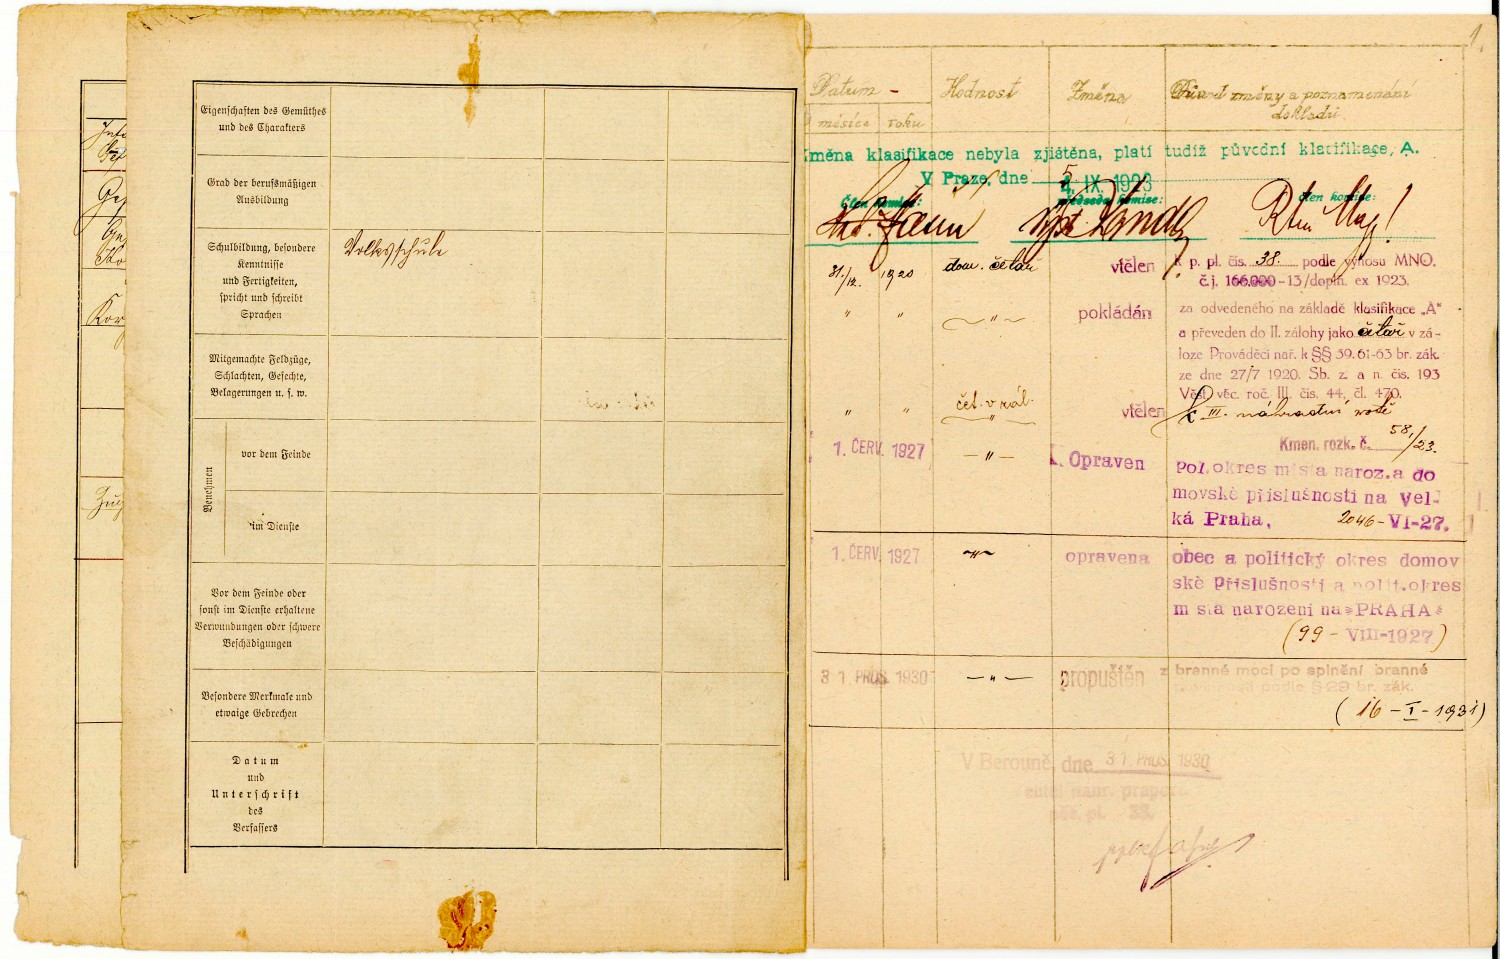 Eigenschaften des Gemüthes
und des Charakters
Grad der berufsmäßigen
Ausbildung
Schulbildung, besondere
Kenntnisse
und Fertigkeiten,
spricht und schreibt
Sprachen
Volksschule
Mitgemachte Feldzüge,
Schlachten, Gefechte,
Belagerungen u. s. w.
Benehmen
vor dem Feinde
im Dienste
Vor dem Feinde oder
sonst im Dienste erhaltene
Verwundungen oder schwere
Beschädigungen
Besondere Merkmale und
etwaige Gebrechen
Datum
und
Unterschrift
des
Verfassers
1.
Datum - Hodnost Změna Důvod změny a poznamenání
dokladů
měsíce roku
změna klasifikace nebyla zjištěna, platí tudíž původní klasifikace, A.
V Praze, dne 5. IX. 1923
člen komise: předseda komise: člen komise:
31./12. 1920 dom. četař vtělen k p. pl. čís. 38. podle výnosu MNO.
č.j. 166.000-13/dopln. ex 1923.
" " " pokládán za odvedeného na základě klasifikace „A"
a převeden do II. zálohy jako četař v zá-
loze Prováděcí nař. k §§ 39. 61-63 br. zák.
ze dne 27/7 1920. Sb. z. a n. čís. 193
Věst. věc. roč. III. čís. 44, čl. 470.
" " čet. v zál. vtělen k III. náhradní rotě
Kmen. rozk. č. 58./23.
1. ČERV. 1927 — " — Opraven Pol. okres místa naroz. a do
movské příslušnosti na Vel-
ká Praha, 2046-VI-27.
1. ČERV. 1927 " opravena obec a politický okres domov
ské Příslušnosti a polit. okres
místa narození na »PRAHA«
(99 - VIII-1927)
31. PROS. 1930 — " — propuštěn z branné moci po splnění branné
povinnosti podle § 29 br. zák.
(16 - I - 1931)
V Berouně, dne 31. PROS. 1930
náhr. praporu
pěš. pl. 38.